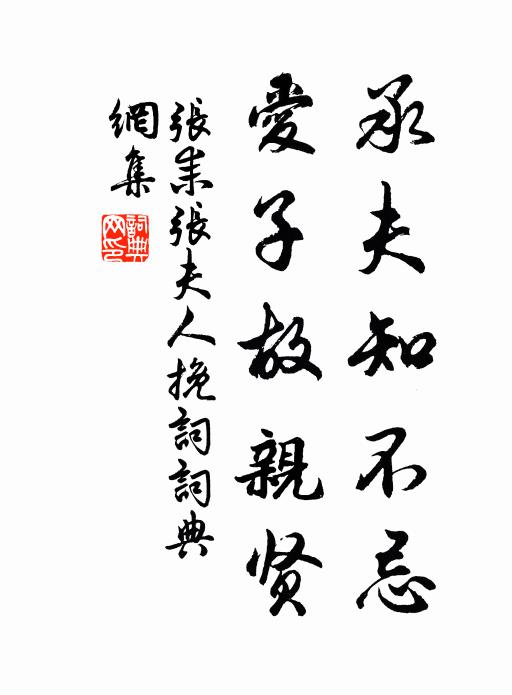 承夫知不忌
愛子故親賢
張耒張夫人挽詞詞典
網集
詞典
网印